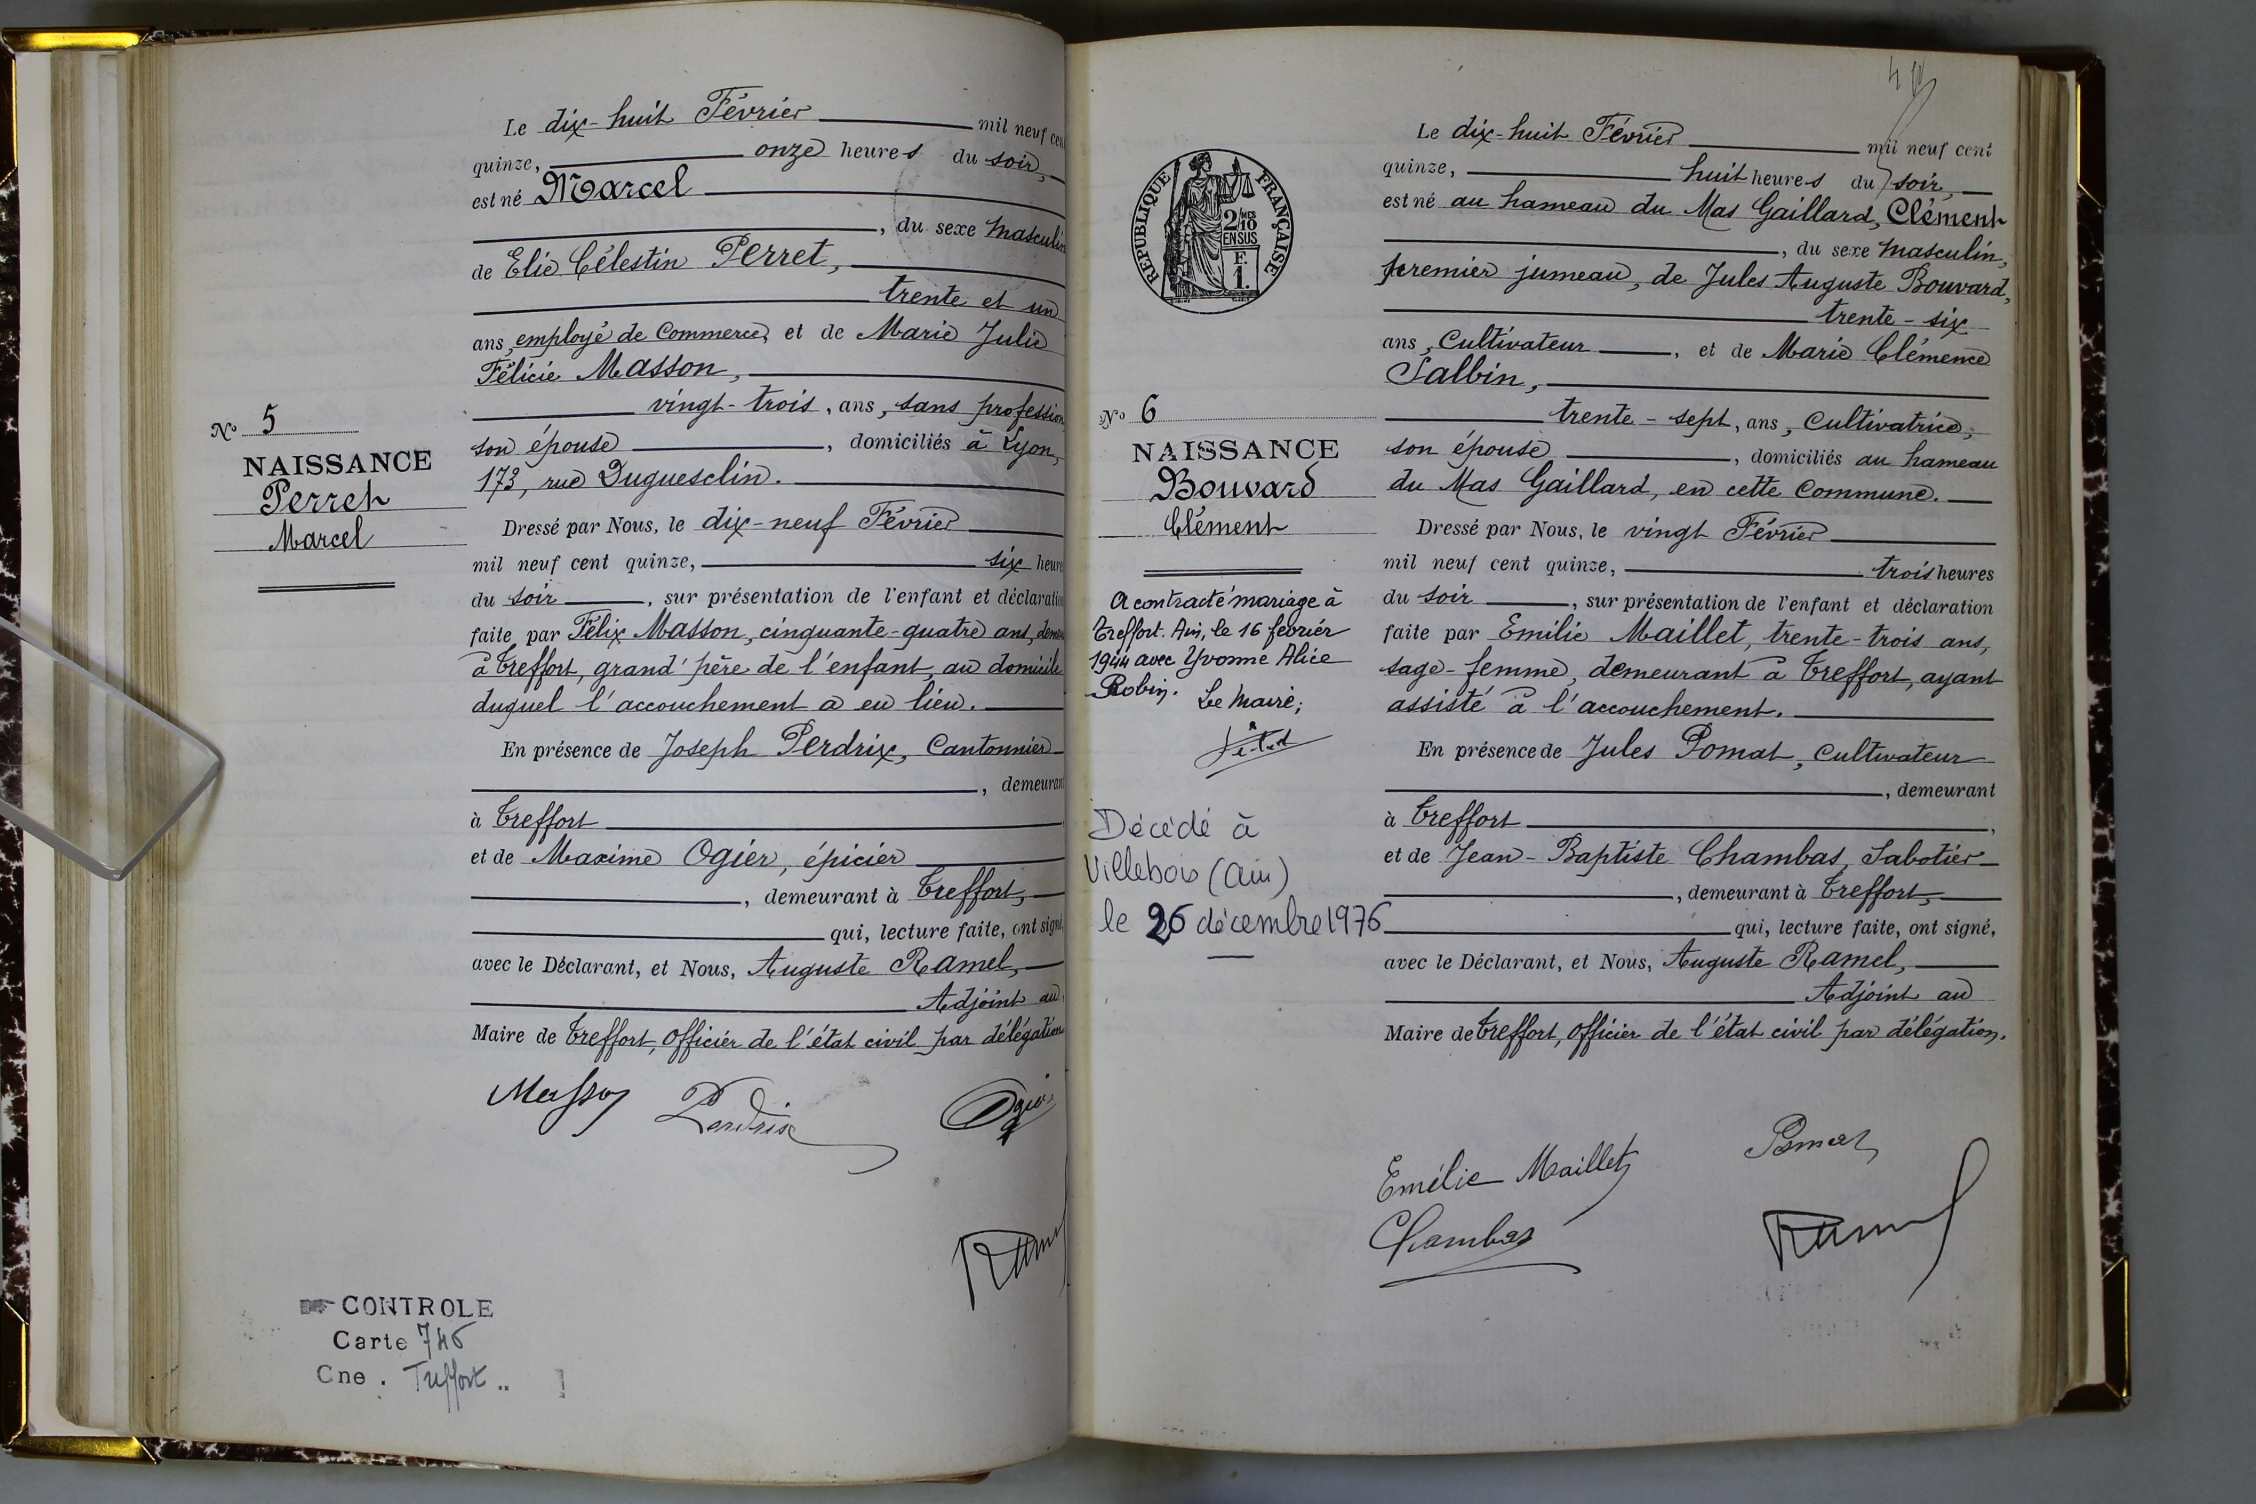 Le dix-huit Février mil neuf cen
quinze, onze heures du soir,
est né Marcel
, du sexe masculin
de Elie Célestin Perret,
trente et un
ans, employé de Commerce, et de Marie Julie
Félicie Masson,
vingt-trois, ans, sans profession
son épouse, domiciliés à Lyon,
173, rue Duguesclin.
Nº 5
NAISSANCE
Perret
Marcel
Dressé par Nous, le dix-neuf Février
mil neuf cent quinze, six heure
du soir, sur présentation de l'enfant et déclaration
faite par Félix Masson, cinquante-quatre ans, demeu
à Treffort, grand'père de l'enfant, au domicile
duquel l'accouchement a eu lieu.
En présence de Joseph Perdrix, Cantonnier
, demeurant
à Treffort
et de Maxime Ogier, épicier
, demeurant à Treffort,
qui, lecture faite, ont signé,
avec le Déclarant, et Nous, Auguste Ramel,
Adjoint au
Maire de Treffort, officier de l'état civil par délégation
Masson Perdrix Ogier
Ramel
CONTROLE
Carte 746
Cne. Treffort
Le dix-huit Février mil neuf cent
quinze, huit heures du soir,
est né au hameau du Mas Gaillard, Clément
, du sexe masculin,
premier jumeau, de Jules Auguste Bouvard,
trente-six
ans, Cultivateur, et de Marie Clémence
Salbin,
trente-sept, ans, Cultivatrice,
son épouse, domiciliés au hameau
du Mas Gaillard, en cette Commune.
RÉPUBLIQUE FRANÇAISE
2/10 MES
EN SUS
F.
1.
Nº 6
NAISSANCE
Bouvard
Clément
A contracté mariage à
Treffort. Ain, le 16 février
1944 avec Yvonne Alice
Robin.
Le Maire,
Décédé à
Villebois (Ain)
le 26 décembre 1976
Dressé par Nous, le vingt Février
mil neuf cent quinze, trois heures
du soir, sur présentation de l'enfant et déclaration
faite par Emilie Maillet, trente-trois ans,
sage-femme, demeurant à Treffort, ayant
assisté à l'accouchement.
En présence de Jules Pomat, Cultivateur
, demeurant
à Treffort,
et de Jean-Baptiste Chambas, Sabotier
, demeurant à Treffort,
qui, lecture faite, ont signé,
avec le Déclarant, et Nous, Auguste Ramel,
Adjoint au
Maire de Treffort, officier de l'état civil par délégation.
Emélie Maillet Pomat
Chambas Ramel